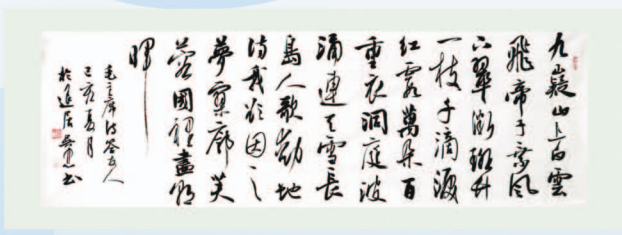 九嶷山上白雲
飛帝子乘風
下翠微斑竹
一枝千滴淚
紅霞萬朵百
重衣洞庭波
涌連天雪長
島人歌動地
詩我欲因之
夢寥廓芙
蓉國裡盡朝
暉
毛主席詩答友人
己亥夏月
於 居 書